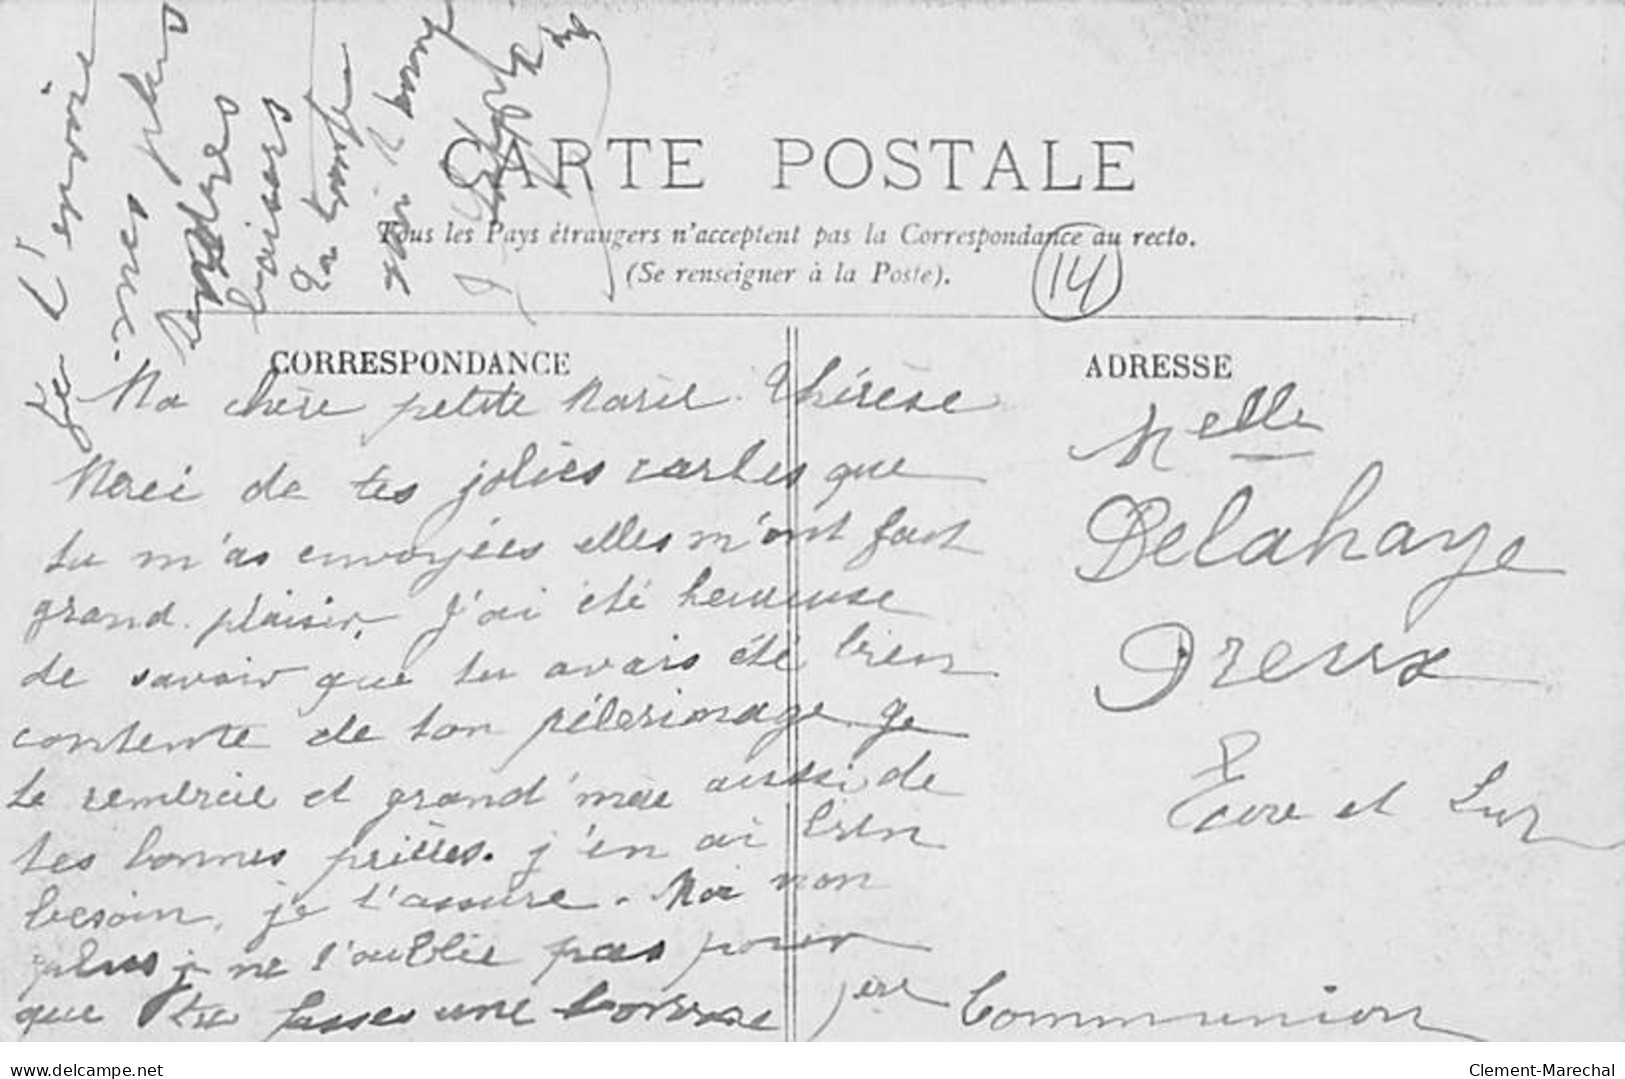 Je t'envoie
mes plus
tendres
baisers
Ta tante
qui t'aime
CARTE POSTALE
Tous les Pays étrangers n'acceptent pas la Correspondance au recto.
(Se renseigner à la Poste).
14
CORRESPONDANCE
Ma chère petite Marie Thérèse
Merci de tes jolies cartes que
tu m'as envoyées elles m'ont fait
grand plaisir, j'ai été heureuse
de savoir que tu avais été bien
contente de ton pélerinage. Je
te remercie et grand'mère aussi de
tes bonnes prières. j'en ai bien
besoin, je t'assure. Moi non
plus je ne t'oublie pas pour
que tu fasses une bonne
1ère Communion
ADRESSE
Melle
Delahaye
Dreux
Eure et Loir
delcampe.net
Clement-Marechal